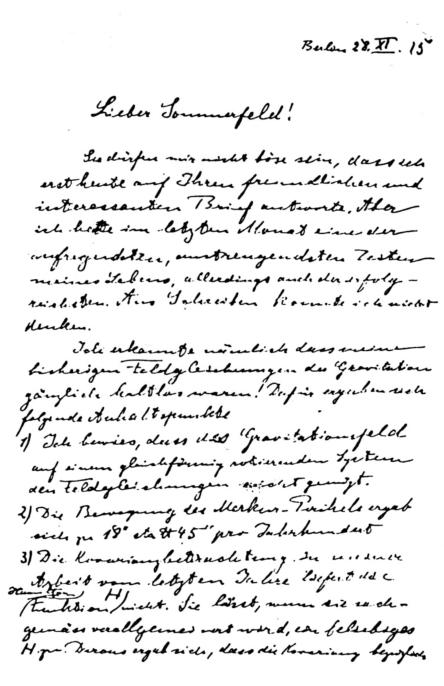 Berlin 28. XI. 15
Lieber Sommerfeld!
Sie dürfen mir nicht böse sein, dass ich
erst heute auf Ihren freundlichen und
interessanten Brief antworte. Aber
ich hatte im letzten Monat eine der
aufregendsten, anstrengendsten Zeiten
meines Lebens, allerdings auch der erfolg-
reichsten. Ans Schreiben konnte ich nicht
denken.
Ich erkannte nämlich dass meine
bisherigen Feldgleichungen der Gravitation
gänzlich haltlos waren! Dafür ergaben sich
folgende Anhaltspunkte
1) Ich bewies, dass das Gravitationsfeld
auf einem gleichförmig rotierenden System
den Feldgleichungen nicht genügt.
2) Die Bewegung des Merkur-Perihels ergab
sich zu 18" statt 45" pro Jahrhundert
3) Die Kovarianzbetrachtung in meiner
Arbeit vom letzten Jahre liefert die
Hamilton
Funktion H nicht. Sie lässt, wenn sie sach-
gemäss verallgemeinert wird, ein beliebiges
H zu. Daraus ergab sich, dass die Kovarianz bezüglich